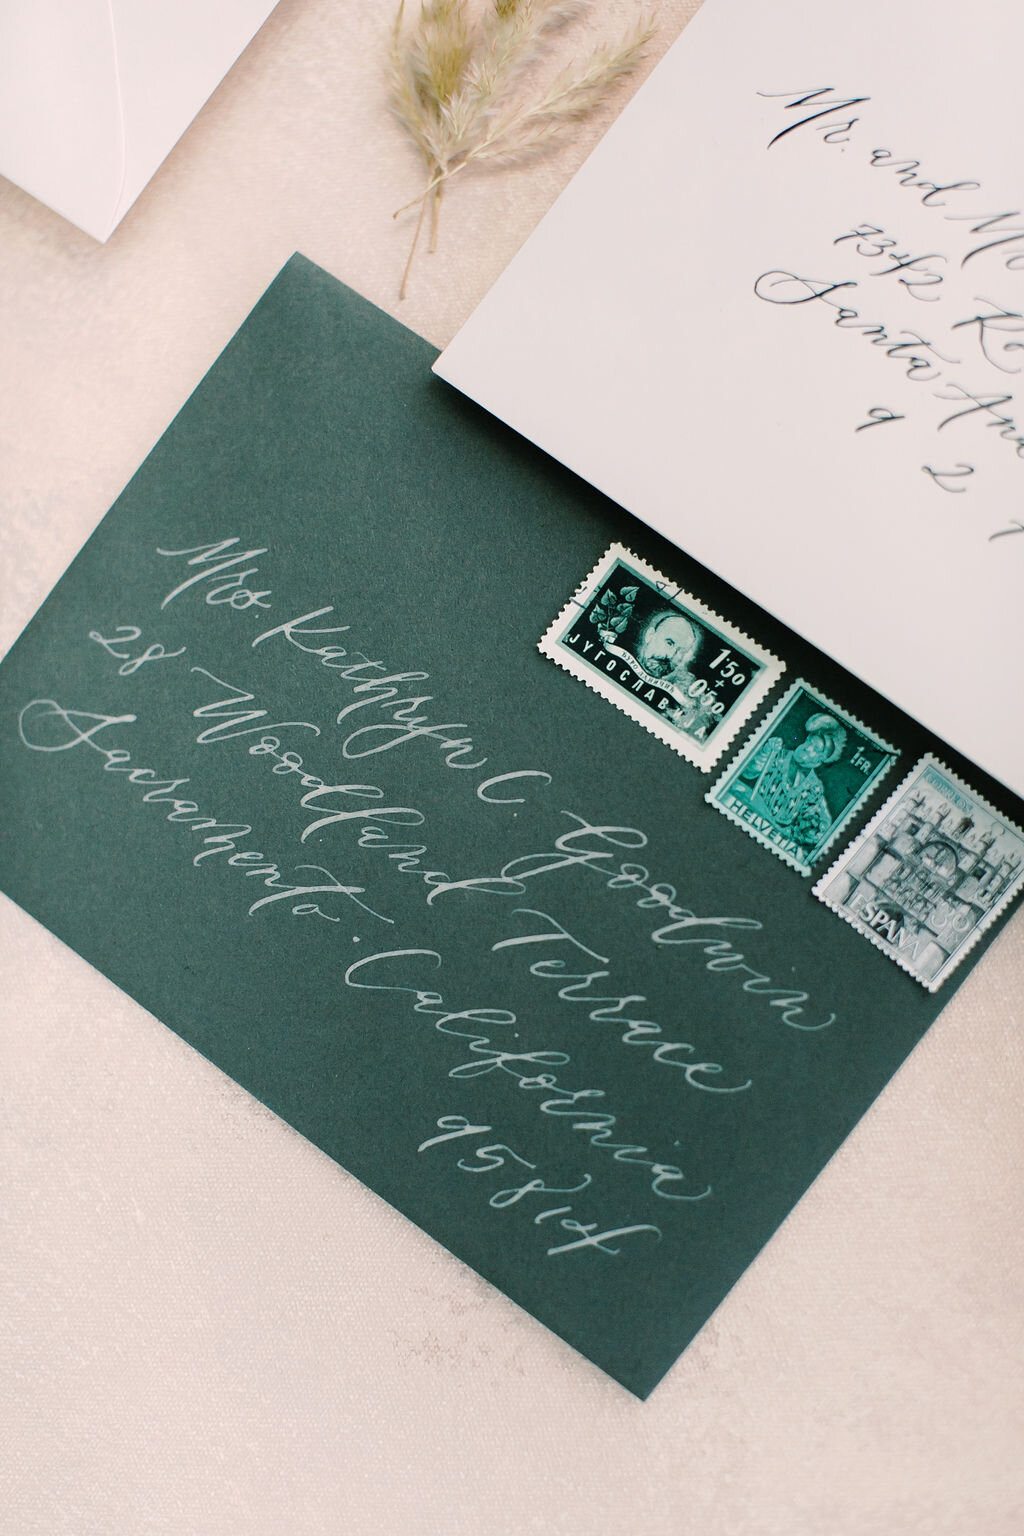 Mr. and
7342
Santa Ana
9 2 7
Mrs. Kathryn C. Goodwin
28 Woodland Terrace
Sacramento. California
95814
ЈУГОСЛАВИЈА
1'50
+
0'50
1 FR.
HELVETIA
CORREOS
ESPAÑA